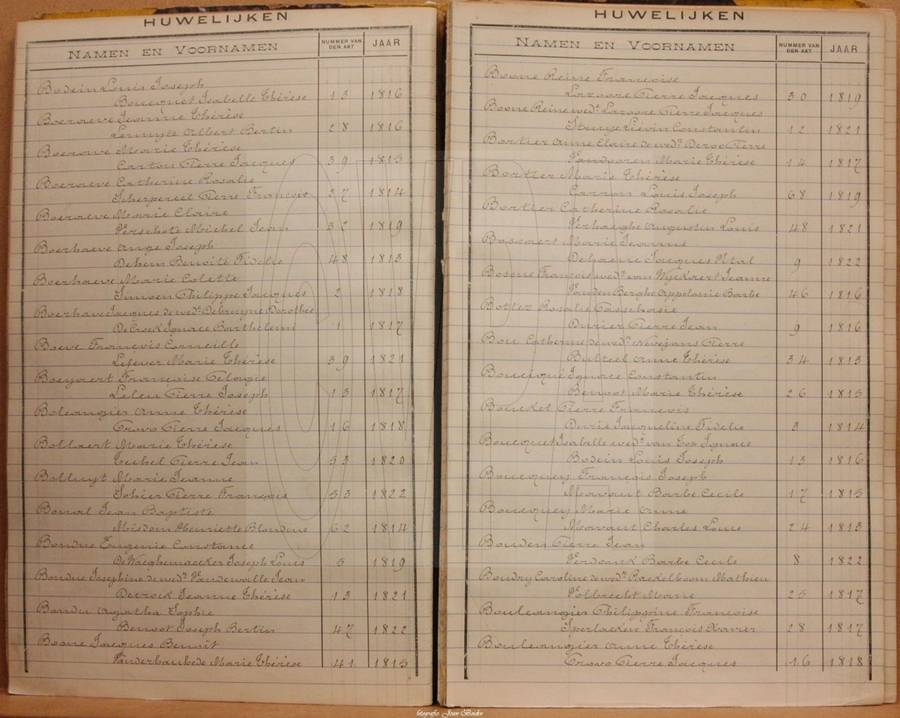 HUWELIJKEN
NAMEN EN VOORNAMEN NUMMER VAN DEN AKT JAAR
Bodein Louis Joseph
Boucquet Isabelle Thérèse 13 1816
Boeraeve Jeanne Thérèse
Albert Bertin 28 1816
Boeraeve Marie Thérèse
Carton Pierre Jacques 39 1813
Boeraeve Catherine Rosalie
Scherpereel Pierre François 37 1814
Boeraeve Marie Claire
Verschote Michel Jean 32 1819
Boerhaeve Ange Joseph
Dehem Benoite Fidelie 48 1813
Boerhaeve Marie Colette
Philippe Jacques 2 1818
Boerhave Jacques de wedr Debruyne Dorothee
De Cock Ignace Barthelemi 1 1817
Boeve François Corneille
Lefever Marie Thérèse 39 1821
Boeyaert Françoise Pelagie
Leleu Pierre Joseph 13 1817
Boleangier Anne Thérèse
Cruvo Pierre Jacques 16 1818
Bollaert Marie Thérèse
Pierre Jean 1820
Bolluyt Marie Jeanne
Sohier Pierre François 33 1822
Bonal Jean Baptiste
Misdom Henriette Blandine 62 1814
Bondue Eugenie Constance
De Waeghemaecker Joseph Louis 5 1819
Bondue Josephine de wede Vandewalle Jean
Decrock Jeanne Thérèse 13 1821
Bondu Agatha Sophie
Benoot Joseph Bertin 47 1822
Boone Jacques Benoit
Vanderhaubede Marie Thérèse 41 1815
HUWELIJKEN
NAMEN EN VOORNAMEN NUMMER VAN DEN AKT JAAR
Boone Reine Françoise
Lazoore Pierre Jacques 30 1819
Boone Reine wede Lazoore Pierre Jacques
Lievin Constantin 12 1821
Bortier Anne Claire de wede Deroo Pierre
Vandooren Marie Thérèse 14 1817
Bortier Marie Thérèse
Louis Joseph 68 1819
Bortier Catherine Rosalie
Verhaeghe Augustin Louis 48 1821
Bossaert Marie Jeanne
Dehaene Jacques Vital 9 1822
François wedr van Wyckaert Jeanne
Vanden Berghe Appolonie Barbe 46 1816
Botter Rosalie
Durier Pierre Jean 9 1816
Bou Catherine de wede Nevejans Pierre
Bulteel Anne Thérèse 34 1813
Boucique Ignace Constantin
Benoot Marie Thérèse 26 1815
Boucket Pierre François
Duris Jacqueline Fidelie 3 1814
Boucquet Isabelle wede van Ignace
Bodein Louis Joseph 13 1816
Boucquey François Joseph
Marcourt Barbe Cecile 17 1815
Boucquey Marie Anne
Charles Louis 24 1813
Bouden Pierre Jean
Verdonck Barbe Cecile 8 1822
Boudry Caroline de wede Raekelboom Mathieu
Volbrecht Marie 25 1817
Bouleangier Philippine Françoise
Sperlaeken François Xavier 28 1817
Bouleangier Anne Thérèse
Cruvo Pierre Jacques 16 1818